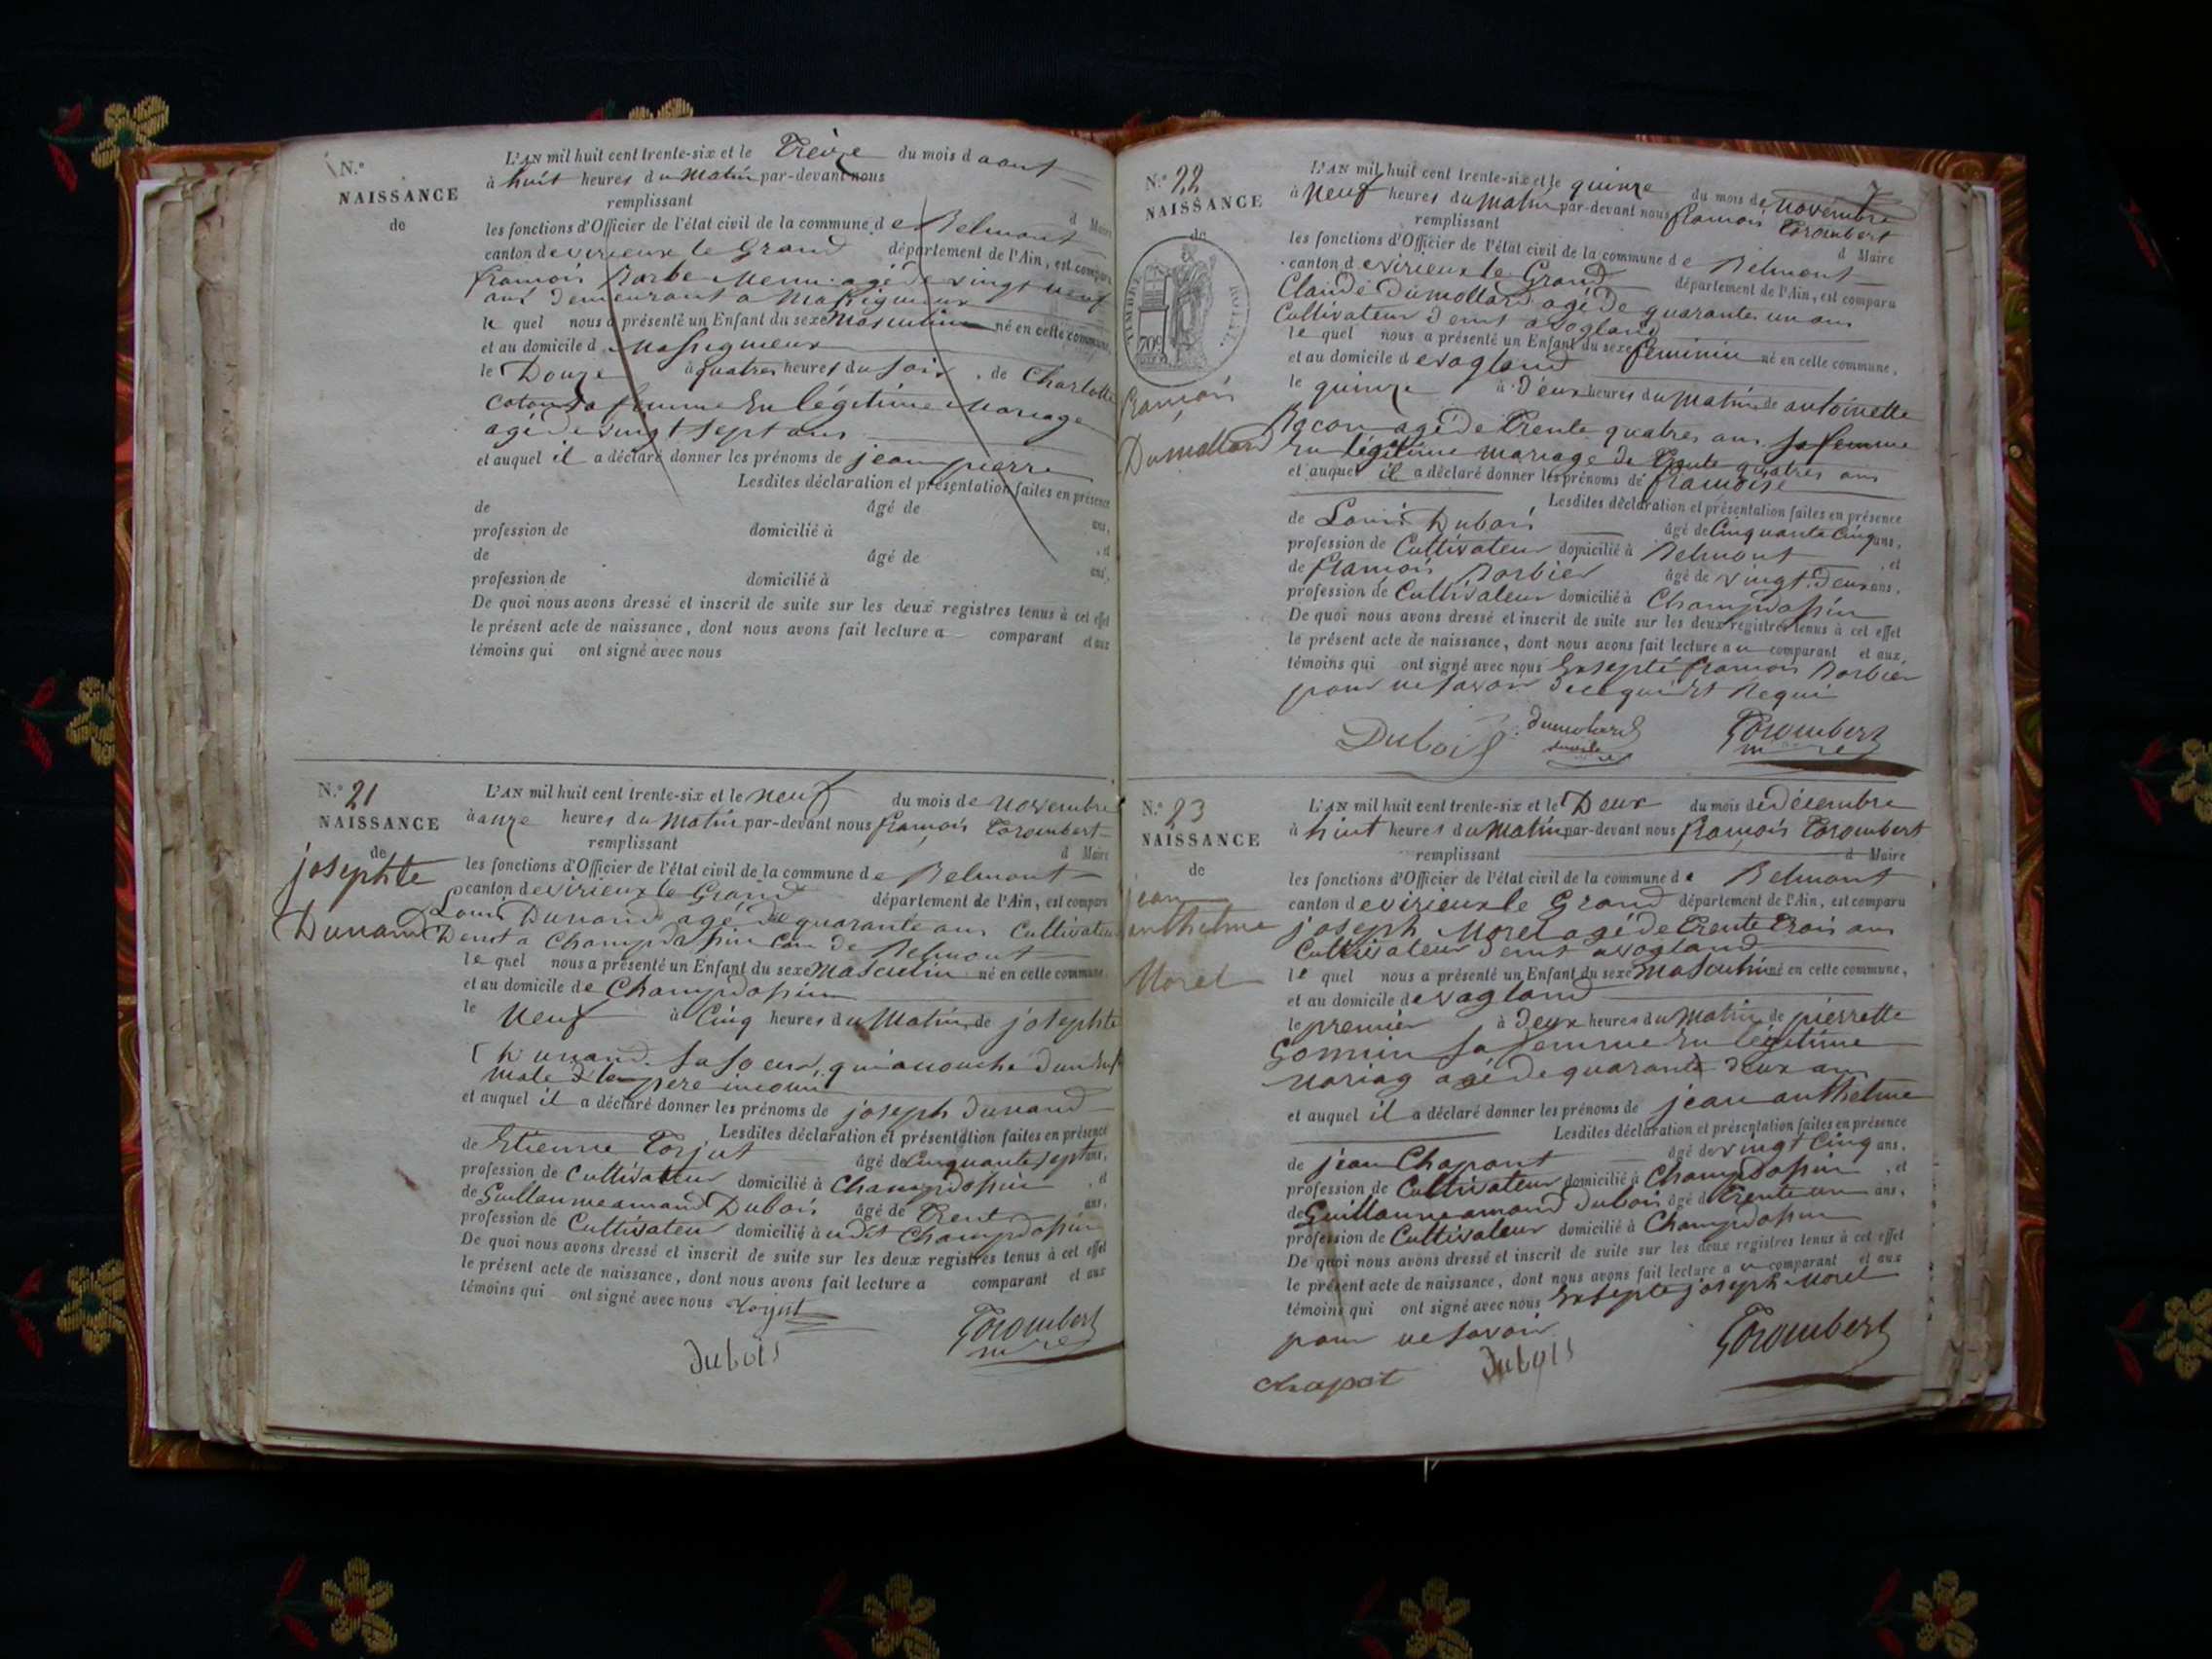 N.°
NAISSANCE
de
L'AN mil huit cent trente-six et le Treize du mois d aout
à huit heures du Matin par-devant nous
remplissant d Maire
les fonctions d'Officier de l'état civil de la commune de Belmont
canton de virieux le Grand département de l'Ain, est comparu
françois Barbe Menu agé de vingt neuf
ans demeurant a Massigneux
le quel nous a présenté un Enfant du sexe Masculin né en cette commune,
et au domicile d Massigneux
le Douze à quatres heures du soir, de Charlotte
sa femme En légitime Mariage
agé de vingt sept ans
et auquel il a déclaré donner les prénoms de jean pierre
Lesdites déclaration et présentation faites en présence
de âgé de ans,
profession de domicilié à , et
de âgé de ans,
profession de domicilié à
De quoi nous avons dressé et inscrit de suite sur les deux registres tenus à cet effet
le présent acte de naissance, dont nous avons fait lecture a comparant et aux
témoins qui ont signé avec nous
N.° 21
NAISSANCE
de
josephte
Dunand
L'AN mil huit cent trente-six et le neuf du mois de Novembre
à onze heures du Matin par-devant nous françois Corombert
remplissant d Maire
les fonctions d'Officier de l'état civil de la commune de Belmont
canton de virieux le Grand département de l'Ain, est comparu
Louis Dunand agé de quarante ans Cultivateur
Demt a Champdossin Com de Belmont
le quel nous a présenté un Enfant du sexe Masculin né en cette commune,
et au domicile de Champdossin
le Neuf à Cinq heures du Matin, de josephte
Dunand sa soeur qui a accouché d'un Enf
male d'un pere inconnu
et auquel il a déclaré donner les prénoms de joseph Dunand
Lesdites déclaration et présentation faites en présence
de Etienne Torjut âgé de Cinquante sept ans,
profession de Cultivateur domicilié à Champdossin , et
de Guillaume amand Dubois âgé de Trent ans,
profession de Cultivateu domicilié à udit Champdossin
De quoi nous avons dressé et inscrit de suite sur les deux registres tenus à cet effet
le présent acte de naissance, dont nous avons fait lecture a comparant et aux
témoins qui ont signé avec nous Torjut
Dubois Corombert
7
N.° 22
NAISSANCE
de
TIMBRE ROYAL
70c
francois
Dumollard
L'AN mil huit cent trente-six et le quinze du mois de Novembre
à Neuf heures du Matin par-devant nous françois Corombert
remplissant d Maire
les fonctions d'Officier de l'état civil de la commune de Belmont
canton de virieux le Grand département de l'Ain, est comparu
Claude Dumollard agé de quarantes un ans
Cultivateur demt a vogland
le quel nous a présenté un Enfant du sexe feminin né en cette commune,
et au domicile de vogland
le quinze à Deux heures du Matin de antoinette
Bocon agé de Trente quatres ans sa femme
En légitime mariage de Trente quatres ans
et auquel il a déclaré donner les prénoms de francoise
Lesdites déclaration et présentation faites en présence
de Louis Dubois âgé de Cinquante Cinq ans,
profession de Cultivateur domicilié à Belmont , et
de francois Borbier âgé de vingt Deux ans,
profession de Cultivateur domicilié à Champdossin
De quoi nous avons dressé et inscrit de suite sur les deux registres tenus à cet effet
le présent acte de naissance, dont nous avons fait lecture a u comparant et aux
témoins qui ont signé avec nous Exsepté francois Borbier
pour ne savoir de ce qui est Requi
Dubois Dumolard Corombert
N.° 23
NAISSANCE
de
jean
anthelme
Morel
L'AN mil huit cent trente-six et le Deux du mois de décembre
à huit heures du Matin par-devant nous françois Corombert
remplissant d Maire
les fonctions d'Officier de l'état civil de la commune de Belmont
canton de virieux le Grand département de l'Ain, est comparu
joseph Morel agé de Trente Trois ans
Cultivateur demt a vogland
le quel nous a présenté un Enfant du sexe Masculin né en cette commune,
et au domicile de vogland
le premier à Deux heures du Matin, de pierrette
Gonnin sa femme En légitime
Mariag agé de quarante deux ans
et auquel il a déclaré donner les prénoms de jean anthelme
Lesdites déclaration et présentation faites en présence
de jean Chapont âgé de vingt Cinq ans,
profession de Cultivateur domicilié à Champdossin , et
de Guillaume amand Dubois âgé de Trente un ans,
profession de Cultivateur domicilié à Champdossin
De quoi nous avons dressé et inscrit de suite sur les deux registres tenus à cet effet
le présent acte de naissance, dont nous avons fait lecture a u comparant et aux
témoins qui ont signé avec nous Exsepté joseph Morel
pour ne savoir
chapot Dubois Corombert